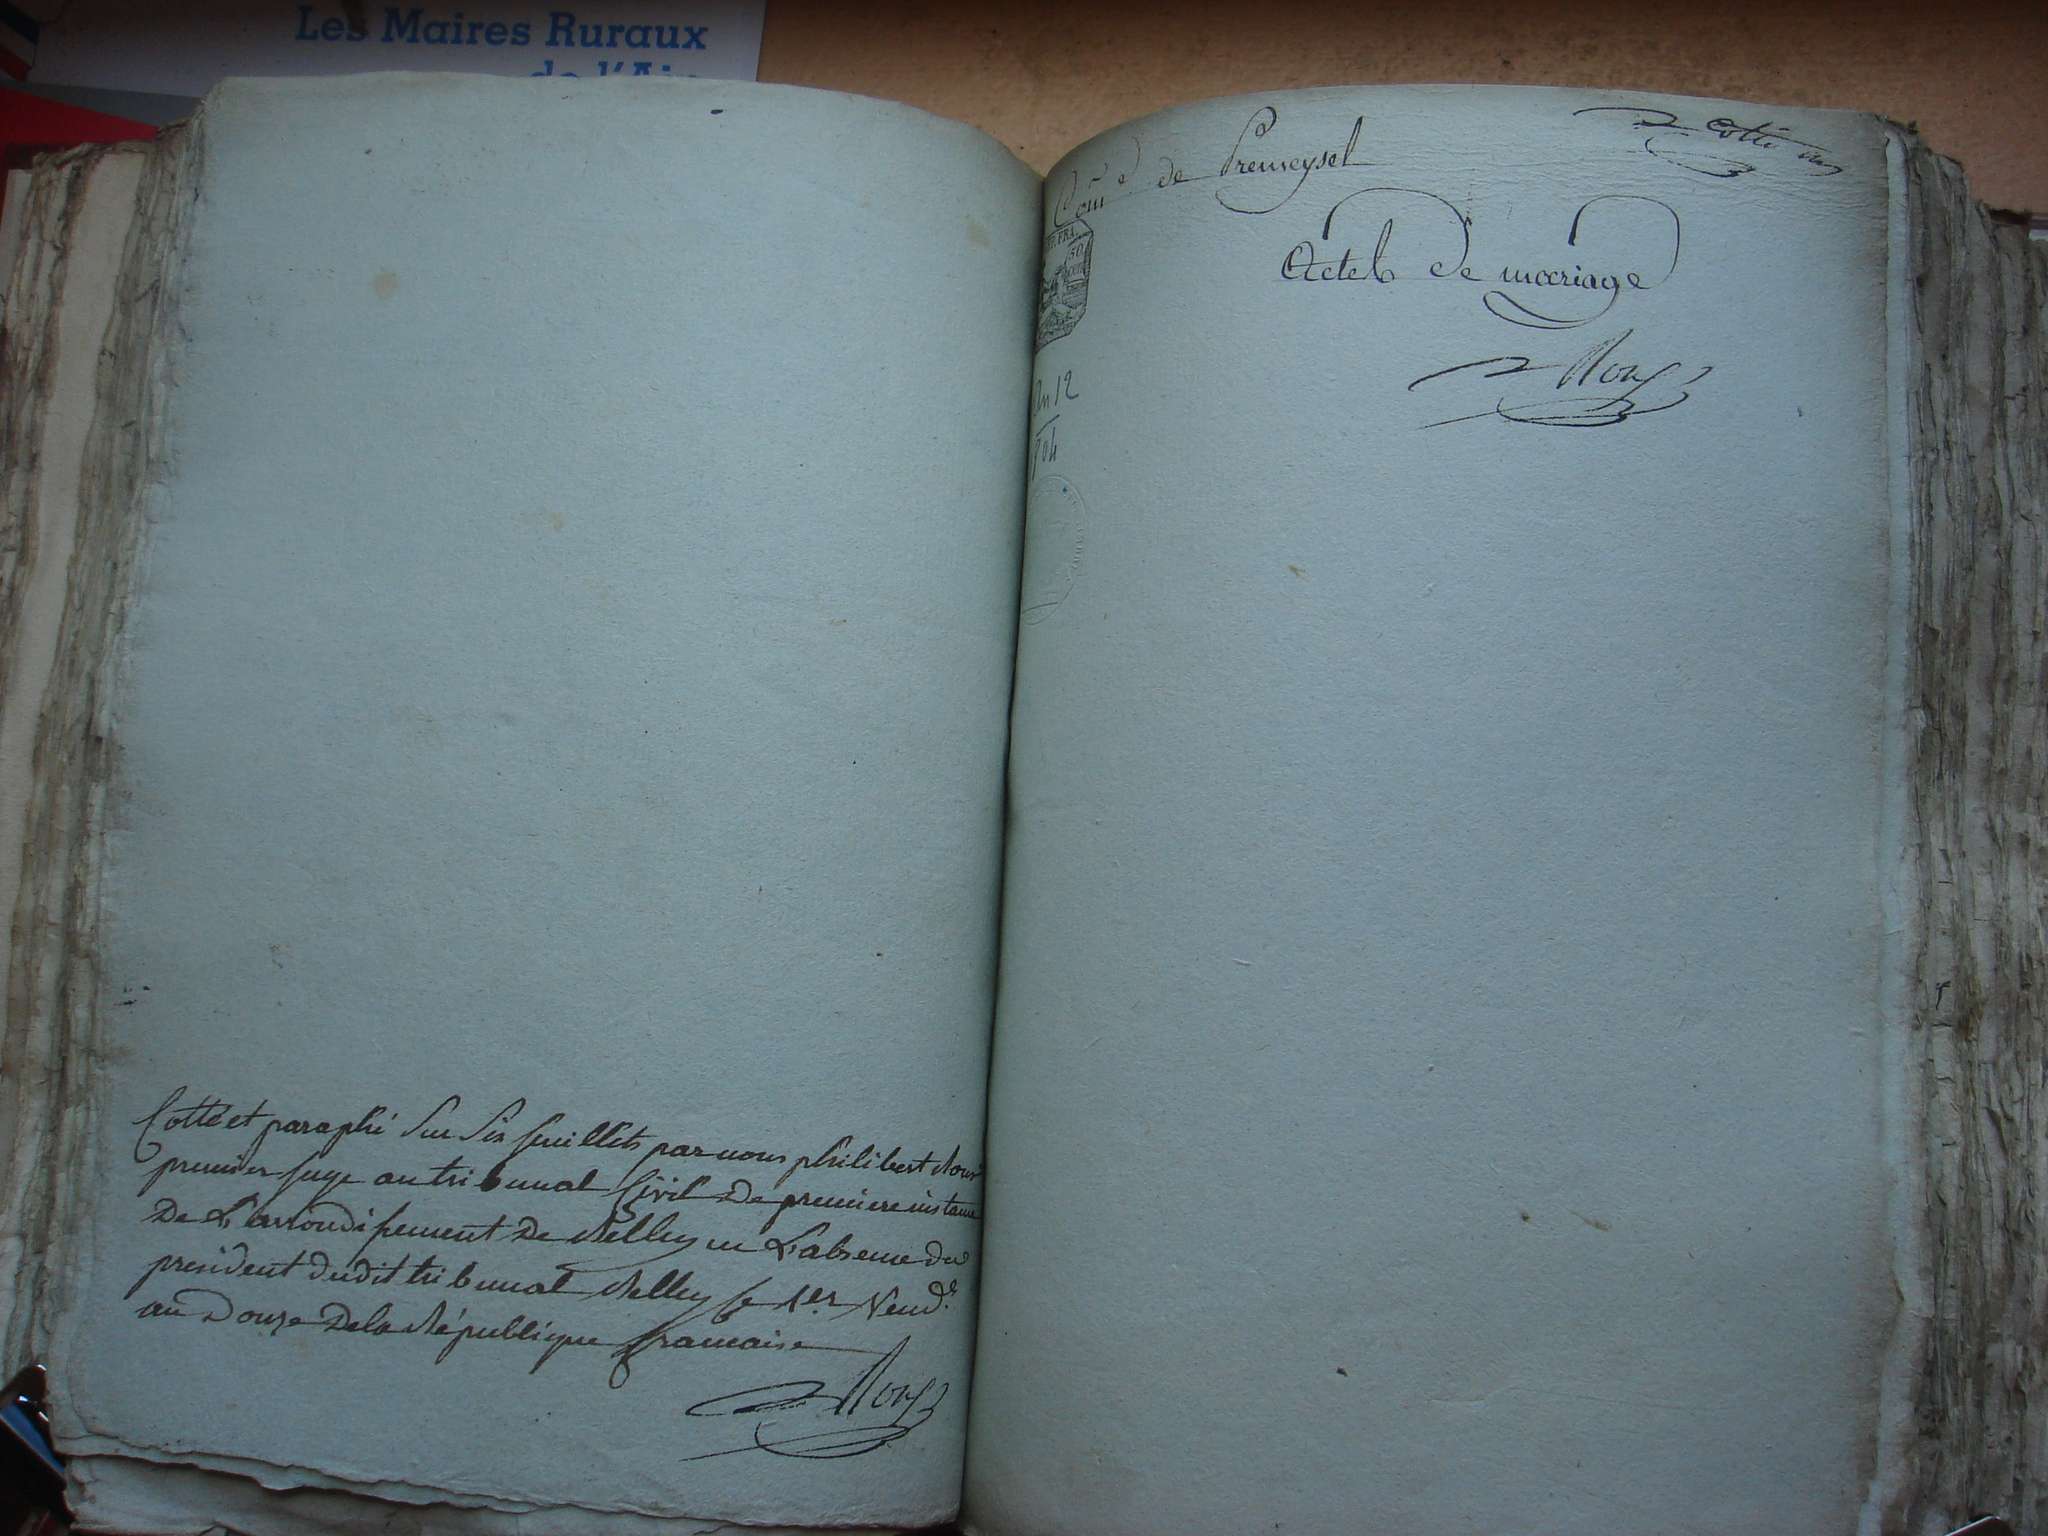 Les Maires Ruraux
de l'Ain
Cotté et paraphé Sur Six feuillets par nous philibert
premier juge au tribunal Civil De premiere instance
De L'arrondissement De Belley en L'absence du
president dudit tribunal Belley le 1er Vend.re
an Douze De la République francaise
Com.e de Premeysel
cotté
Actes De mariage
RF. FRA.
50
An 12
804